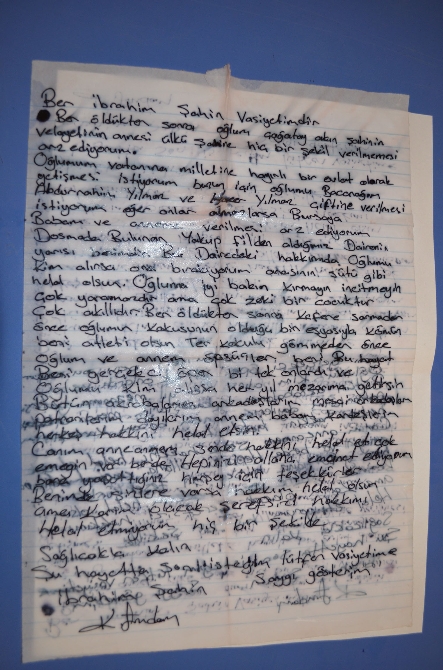 Ben ibrahim Şahin Vasiyetimdir
Ben öldükten sonra oğlum Çağatay akın şahinin
velayetinin annesi ülkü şahine hiç bir şekil verilmemesi
arz ediyorum.
Oğlumun vatanına milletine hayırlı bir evlat olarak
yetişmesi istiyorum bunun için oğlumu Bacanağım
Abdurrahim Yılmaz ve Yılmaz çiftine verilmesi
istiyorum eğer onlar almazlarsa Bursaya
Babam ve anneme verilmesi arz ediyorum
Dosmada Bulunan Yakup filden aldığımız Dairenin
yarısı benimdir Ben Dairedeki hakkımıda Oğlumu
kim alırsa ona bırakıyorum anasının sütü gibi
helal olsun. Oğluma iyi bakın kırmayın incitmeyin
Çok yaramazdır ama çok zeki bir çocuktur
Çok akıllıdır Ben öldükten sonra kefene sarmadan
önce oğlumun kokusunun olduğu bir eşyasıyla gömün
beni atleti olsun Ter kokulu gömmeden önce
Oğlum ve annem öpsünler beni Bu hayat
Beni gerçekten seven bi tek onlardı ve
Oğlumu kim alırsa her yıl mezarıma getirsin
Bütün akrabalarım arkadaşlarım mesai arkadaşlarım
patronlarım dayılarım annem babam kardeşlerim
herkes hakkını helal etsin.
Canım anneannem sende hakkını helal et çok
emeğin var bende Hepinizi allaha emanet ediyorum
bana yaptığınız herşey için teşekkürler
Benimde sizlere varsa hakkım helal olsun
ama karım olacak şerefsize hakkımı
Helal etmiyorum hiç bir şekilde
Sağlıcakla kalın
Şu hayatta son isteğim lütfen vasiyetime
saygı gösterin
ibrahim şahin